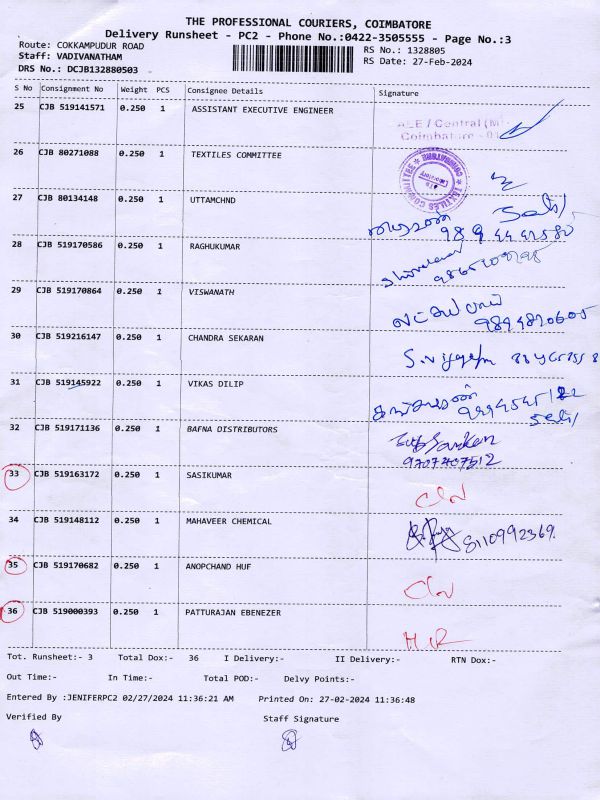 THE PROFESSIONAL COURIERS, COIMBATORE
Delivery Runsheet - PC2 - Phone No.:0422-3505555 - Page No.:3
Route: COKKAMPUDUR ROAD RS No.: 1328805
Staff: VADIVANATHAM RS Date: 27-Feb-2024
DRS No.: DCJB132880503
S No Consignment No Weight PCS Consignee Details Signature
25 CJB 519141571 0.250 1 ASSISTANT EXECUTIVE ENGINEER
26 CJB 80271088 0.250 1 TEXTILES COMMITTEE
TEXTILES COMMITTEE
27 CJB 80134148 0.250 1 UTTAMCHND
28 CJB 519170586 0.250 1 RAGHUKUMAR
29 CJB 519170864 0.250 1 VISWANATH
9894820605
30 CJB 519216147 0.250 1 CHANDRA SEKARAN
31 CJB 519145922 0.250 1 VIKAS DILIP
32 CJB 519171136 0.250 1 BAFNA DISTRIBUTORS
9707407512
33 CJB 519163172 0.250 1 SASIKUMAR
34 CJB 519148112 0.250 1 MAHAVEER CHEMICAL
8110992369.
35 CJB 519170682 0.250 1 ANOPCHAND HUF
36 CJB 519000393 0.250 1 PATTURAJAN EBENEZER
Tot. Runsheet:- 3 Total Dox:- 36 I Delivery:- II Delivery:- RTN Dox:-
Out Time:- In Time:- Total POD:- Delvy Points:-
Entered By :JENIFERPC2 02/27/2024 11:36:21 AM Printed On: 27-02-2024 11:36:48
Verified By Staff Signature